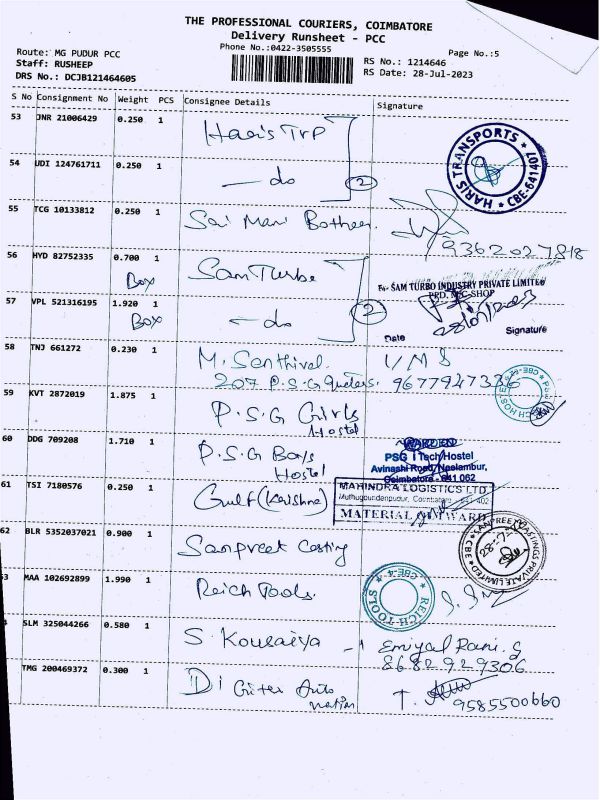 THE PROFESSIONAL COURIERS, COIMBATORE
Delivery Runsheet - PCC
Phone No.:0422-3505555
Page No.:5
Route: MG PUDUR PCC
Staff: RUSHEEP
DRS No.: DCJB121464605
RS No.: 1214646
RS Date: 28-Jul-2023
S No Consignment No Weight PCS Consignee Details Signature
53 JNR 21006429 0.250 1 Haris Trp
HARIS TRANSPORTS ★ CBE-641407 ★
54 UDI 124761711 0.250 1 — do 2
55 TCG 10133812 0.250 1 Sai Mani
9362027818
56 HYD 82752335 0.700 1 Sam Turbo
Box
For SAM TURBO INDUSTRY PRIVATE LIMITED
57 VPL 521316195 1.920 1 — do 2
Box
28/07/2023
Date Signature
58 TNJ 661272 0.230 1 M. Senthivel.
207 P.S.G 9677947336
59 KVT 2872019 1.875 1 P.S.G Girls
Hostel
60 DDG 709208 1.710 1 P.S.G Boys
Hostel
WARDEN
PSG iTech Hostel
Avinashi Road, Neelambur,
Coimbatore - 641 062
61 TSI 7180576 0.250 1 Gulf (Krishna)
MAHINDRA LOGISTICS LTD
Muthugoundenpudur, Coimbatore - 641 402
MATERIAL INWARD
62 BLR 5352037021 0.900 1 Sanpreet Casting
SANPREET CASTINGS PRIVATE LIMITED ★ CBE ★
63 MAA 102692899 1.990 1 Reich Tools.
REICH-TOOLS ★ CBE-4 ★
SLM 325044266 0.580 1 S. Kousalya
8682929306
TMG 200469372 0.300 1
9585500660